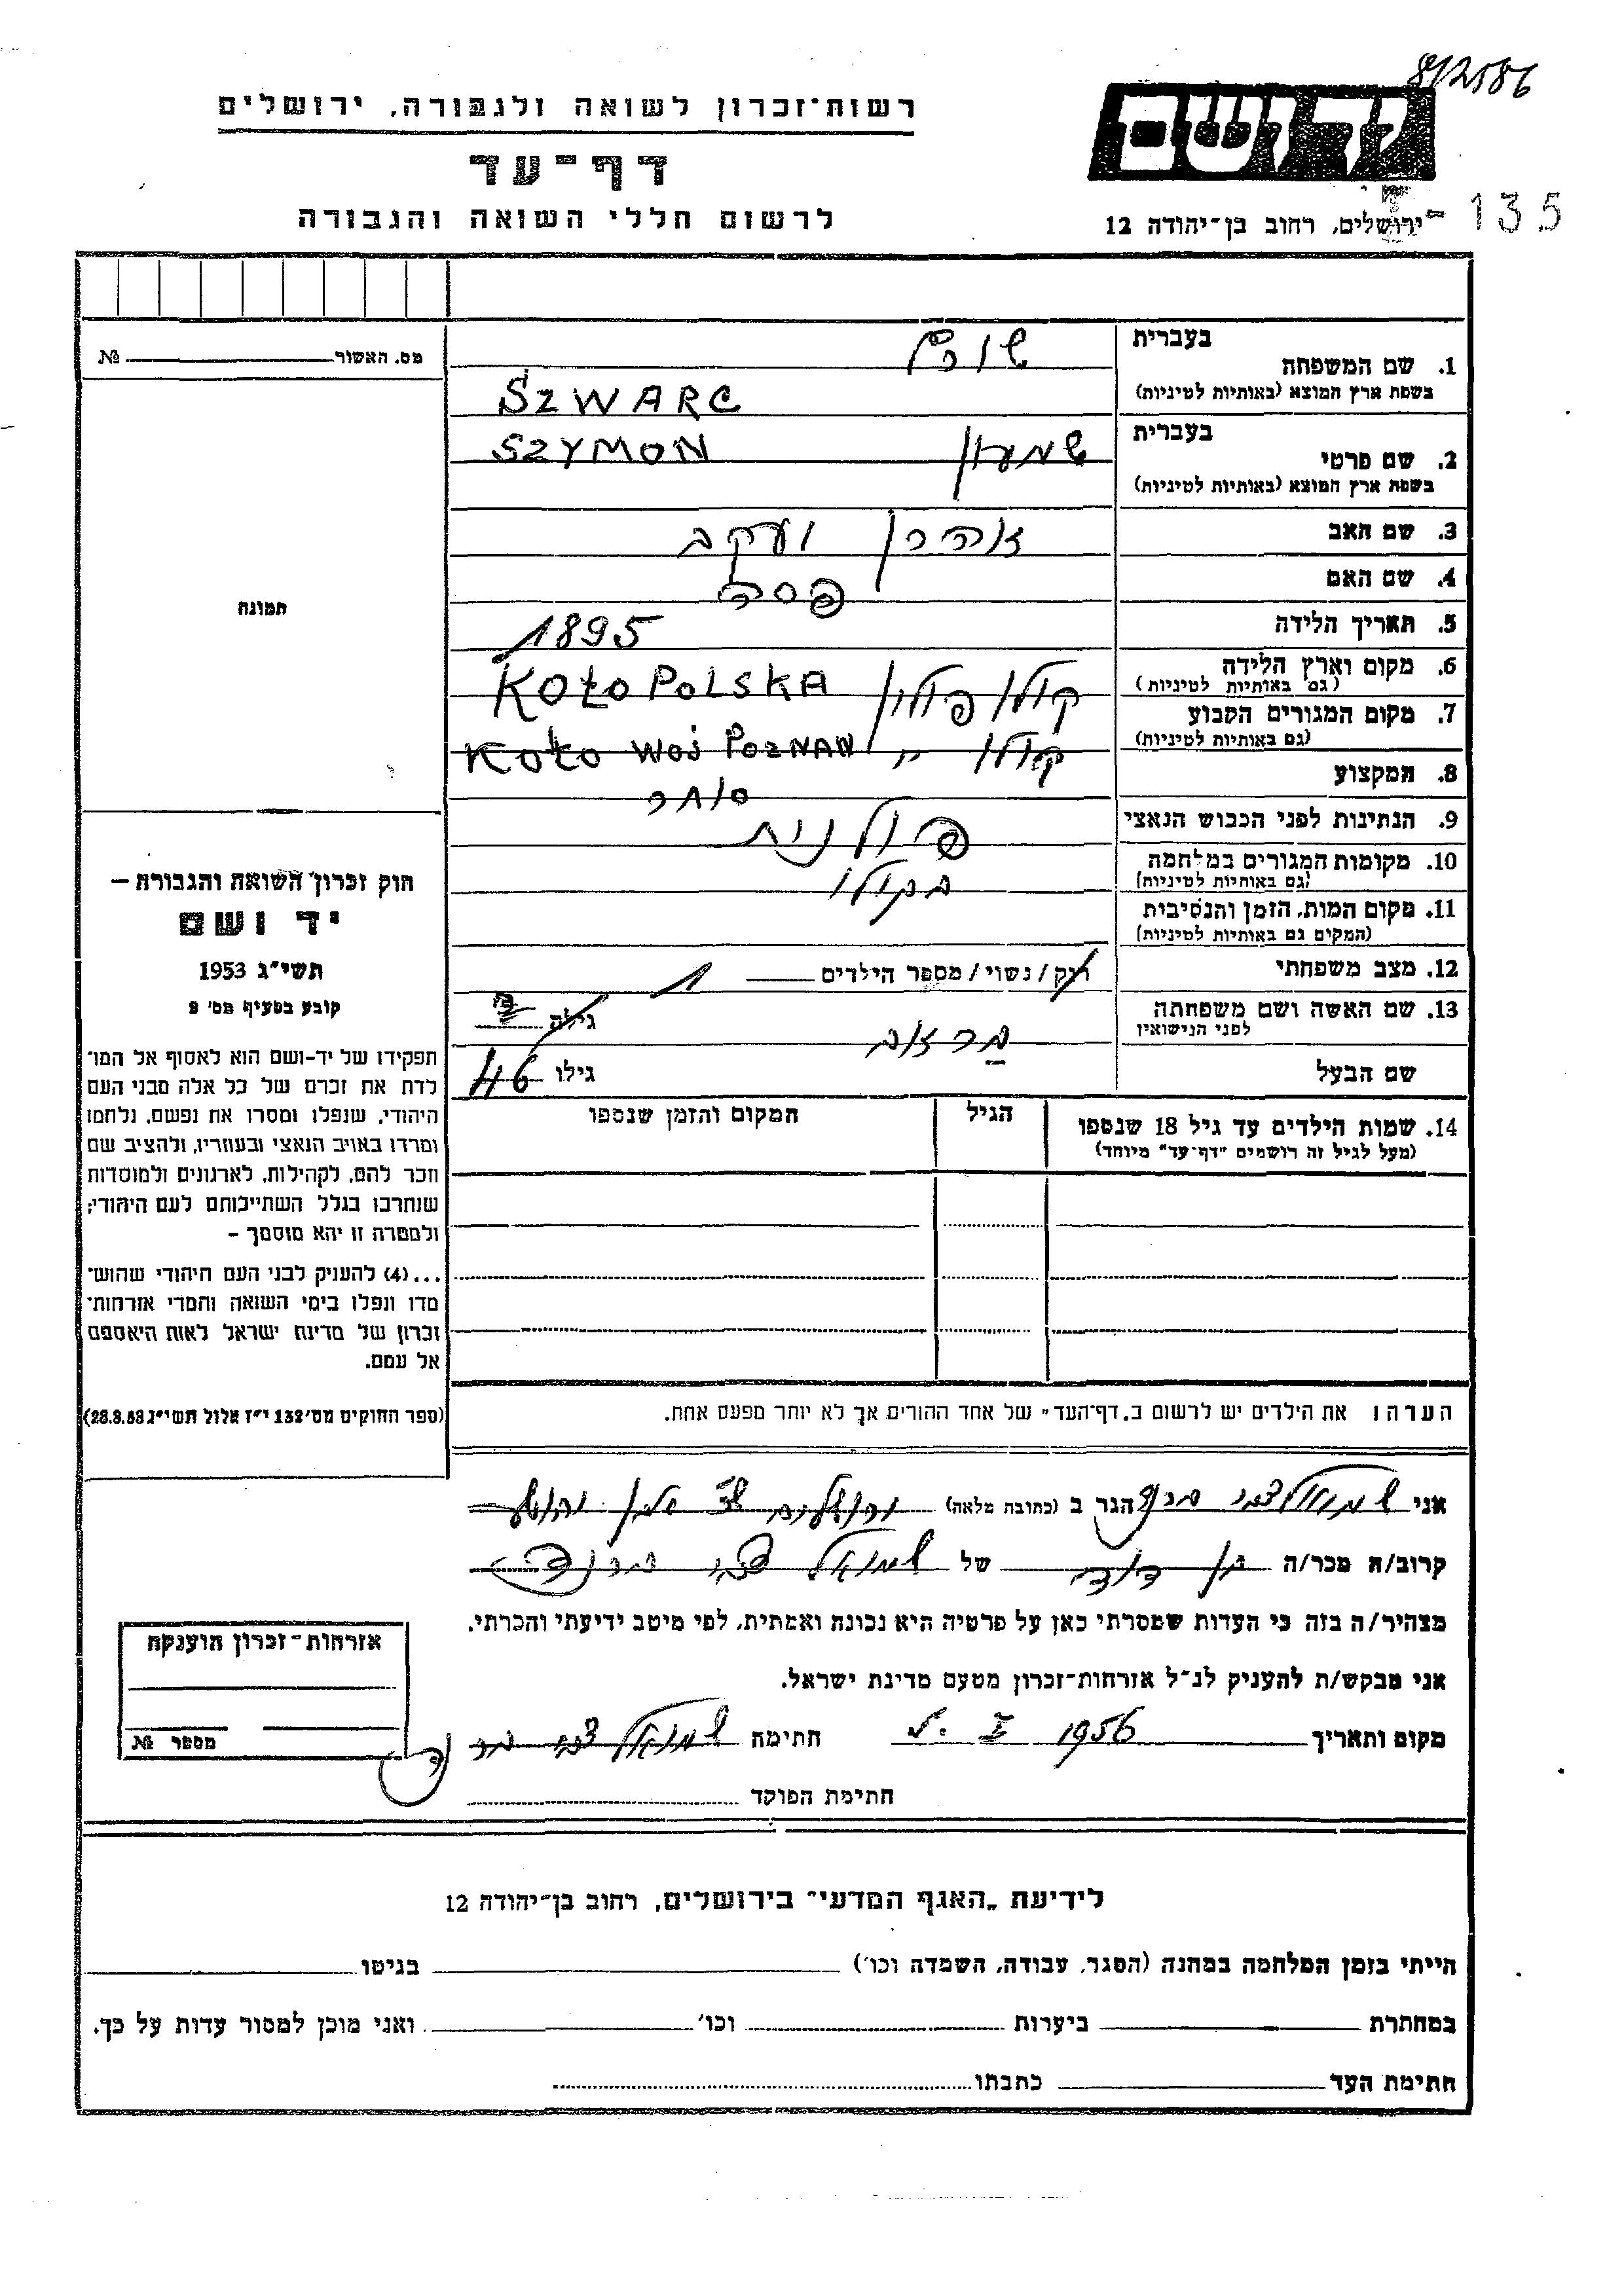 8/2586
רשות־זכרון לשואה ולגבורה, ירושלים
יד ושם
דף־עד
135
לרשום חללי השואה והגבורה
ירושלים, רחוב בן־יהודה 12
מס. האשור №
בעברית
1. שם המשפחה
בשפת ארץ המוצא (באותיות לטיניות)
שורץ
SZWARC
בעברית
2. שם פרטי
בשפת ארץ המוצא (באותיות לטיניות)
שמעון
SZYMON
3. שם האב
אהרון יעקב
4. שם האם
פסה
5. תאריך הלידה
1895
6. מקום וארץ הלידה
(גם באותיות לטיניות)
קולו פולין KOŁO POLSKA
7. מקום המגורים הקבוע
(גם באותיות לטיניות)
קולו " KOŁO WOJ POZNAN
8. המקצוע
סוחר
9. הנתינות לפני הכבוש הנאצי
פולנית
10. מקומות המגורים במלחמה
(גם באותיות לטיניות)
בקולו
11. מקום המות, הזמן והנסיבית
(המקום גם באותיות לטיניות)
12. מצב משפחתי
רוק / נשוי / מספר הילדים 1
13. שם האשה ושם משפחתה
לפני הנישואין
גילה
שם הבעל
גילו 46
תמונה
חוק זכרון השואה והגבורה –
יד ושם
תשי"ג 1953
קובע בסעיף מס' 2
תפקידו של יד־ושם הוא לאסוף אל המו־
לדת את זכרם של כל אלה מבני העם
היהודי, שנפלו ומסרו את נפשם, נלחמו
ומרדו באויב הנאצי ובעוזריו, ולהציב שם
וזכר להם, לקהילות, לארגונים ולמוסדות
שנחרבו בגלל השתייכותם לעם היהודי;
ולמטרה זו יהא מוסמך –
...(4) להעניק לבני העם היהודי שהוש־
מדו ונפלו בימי השואה והמרי אזרחות־
זכרון של מדינת ישראל לאות היאספם
אל עמם.
(ספר החוקים מס' 132 י"ז אלול תשי"ג 28.8.53)
14. שמות הילדים עד גיל 18 שנספו
(מעל לגיל זה רושמים "דף־עד" מיוחד)
הגיל
המקום והזמן שנספו
הערה: את הילדים יש לרשום ב„דף־העד" של אחד ההורים אך לא יותר מפעם אחת.
אני שמואל צבי הגר ב (כתובת מלאה) ירושלים
קרוב/ה מכר/ה בן דוד של שמואל צבי
מצהיר/ה בזה כי העדות שמסרתי כאן על פרטיה היא נכונה ואמתית, לפי מיטב ידיעתי והכרתי.
אני מבקש/ת להעניק לנ"ל אזרחות־זכרון מטעם מדינת ישראל.
מקום ותאריך 1956 חתימה שמואל צבי
חתימת הפוקד
אזרחות־זכרון הוענקה
מספר №
לידיעת „האגף המדעי" בירושלים, רחוב בן־יהודה 12
הייתי בזמן המלחמה במחנה (הסגר, עבודה, השמדה וכו') בגיטו
במחתרת ביערות וכו' ואני מוכן למסור עדות על כך.
חתימת העד כתבתו